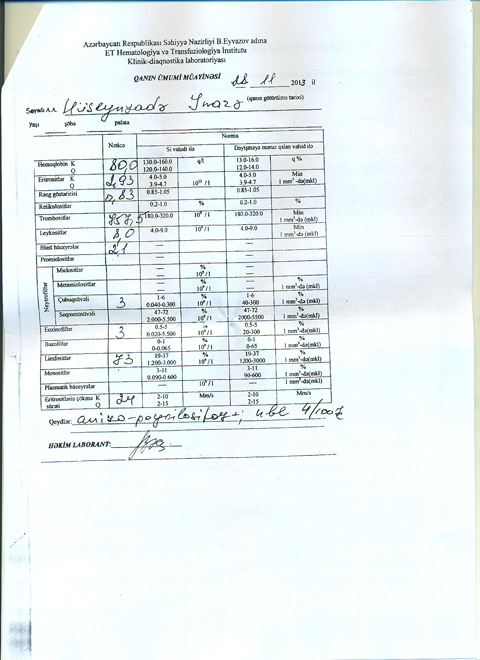 Azərbaycan Respublikası Səhiyyə Nazirliyi B.Eyvazov adına
ET Hematologiya və Transfuziologiya İnstitutu
Klinik-diaqnostika laboratoriyası
QANIN ÜMUMİ MÜAYİNƏSİ 28 11 2013 il
Soyadı A.A. Hüseynzadə (qanın götürülmə tarixi)
yaşı şöbə palata
Nəticə Norma
Si vahidi ilə Dəyişməyə məruz qalan vahid ilə
Hemoqlobin K 80,0 130.0-160.0 q/l 13.0-16.0 q %
Q 120.0-140.0 12.0-14.0
Eritrositlər K 2,93 4.0-5.0 4.0-5.0 Min
Q 3.9-4.7 10¹² / l 3.9-4.7 1 mm³-də(mkl)
Rəng göstəricisi 0,83 0.85-1.05 0.85-1.05
Retikulositlər 0.2-1.0 % 0.2-1.0 %
Trombositlər 757,5 180.0-320.0 10⁹ / l 180.0-320.0 Min
1 mm³-də (mkl)
Leykositlər 8,0 4.0-9.0 10⁹ / l 4.0-9.0 Min
1 mm³-də (mkl)
Blast hüceyrələr 21 ---- ----
Promielositlər ---- ----
Neytrofillər
Mielositlər ---- % ---- %
---- 10⁹ / l ---- 1 mm³-də (mkl)
Metamielositlər ---- % ---- %
---- 10⁹ / l ---- 1 mm³-də (mkl)
Çubuqnüvəli 3 1-6 % 1-6 %
0.040-0.300 10⁹ / l 40-300 1 mm³-də(mkl)
Seqmentnüvəli 47-72 % 47-72 %
2.000-5.500 10⁹ / l 2000-5500 1 mm³-də(mkl)
Eozinofillər 3 0.5-5 % 0.5-5 %
0.020-5.500 10⁹ / l 20-100 1 mm³-də(mkl)
Bazofillər 0-1 % 0-1 %
0-0.065 10⁹ / l 0-65 1 mm³-də(mkl)
Limfositlər 73 19-37 % 19-37 %
1.200-3.000 10⁹ / l 1200-3000 1 mm³-də(mkl)
Monositlər 3-11 % 3-11 %
0.090-0.600 10⁹ / l 90-600 1 mm³-də(mkl)
Plazmatik hüceyrələr ---- 10⁹ / l ---- 1 mm³-də(mkl)
Eritrositlərin çökmə K 24 2-10 Mm/s 2-10 Mm/s
sürəti Q 2-15 2-15
Qeydlər: 4/100
HƏKİM LABORANT: